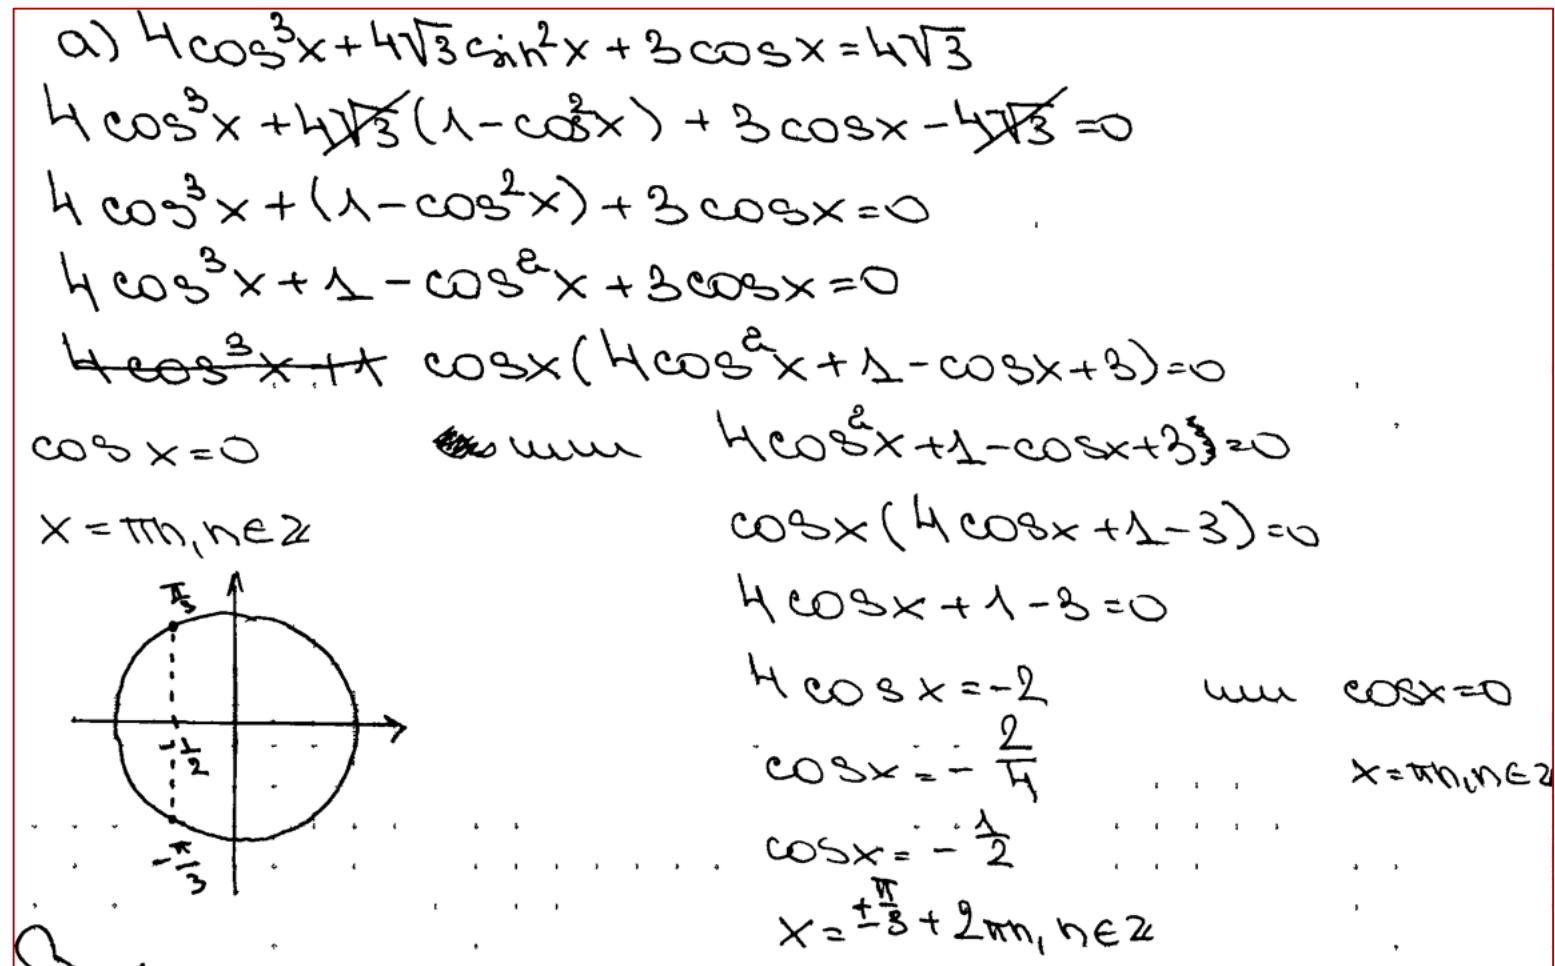 а) 4cos³x+4√3 sin²x+3cosx=4√3
4cos³x+4√3(1-cos²x)+3cosx-4√3=0
4cos³x+(1-cos²x)+3cosx=0
4cos³x+1-cos²x+3cosx=0
4cos³x+1 cosx(4cos²x+1-cosx+3)=0
cosx=0 или 4cos²x+1-cosx+3=0
x=πn, n∈Z cosx(4cosx+1-3)=0
4cosx+1-3=0
π/3
4cosx=-2 или cosx=0
-1/2
cosx=-2/4 x=πn, n∈Z
cosx=-1/2
-π/3
x=±π/3+2πn, n∈Z